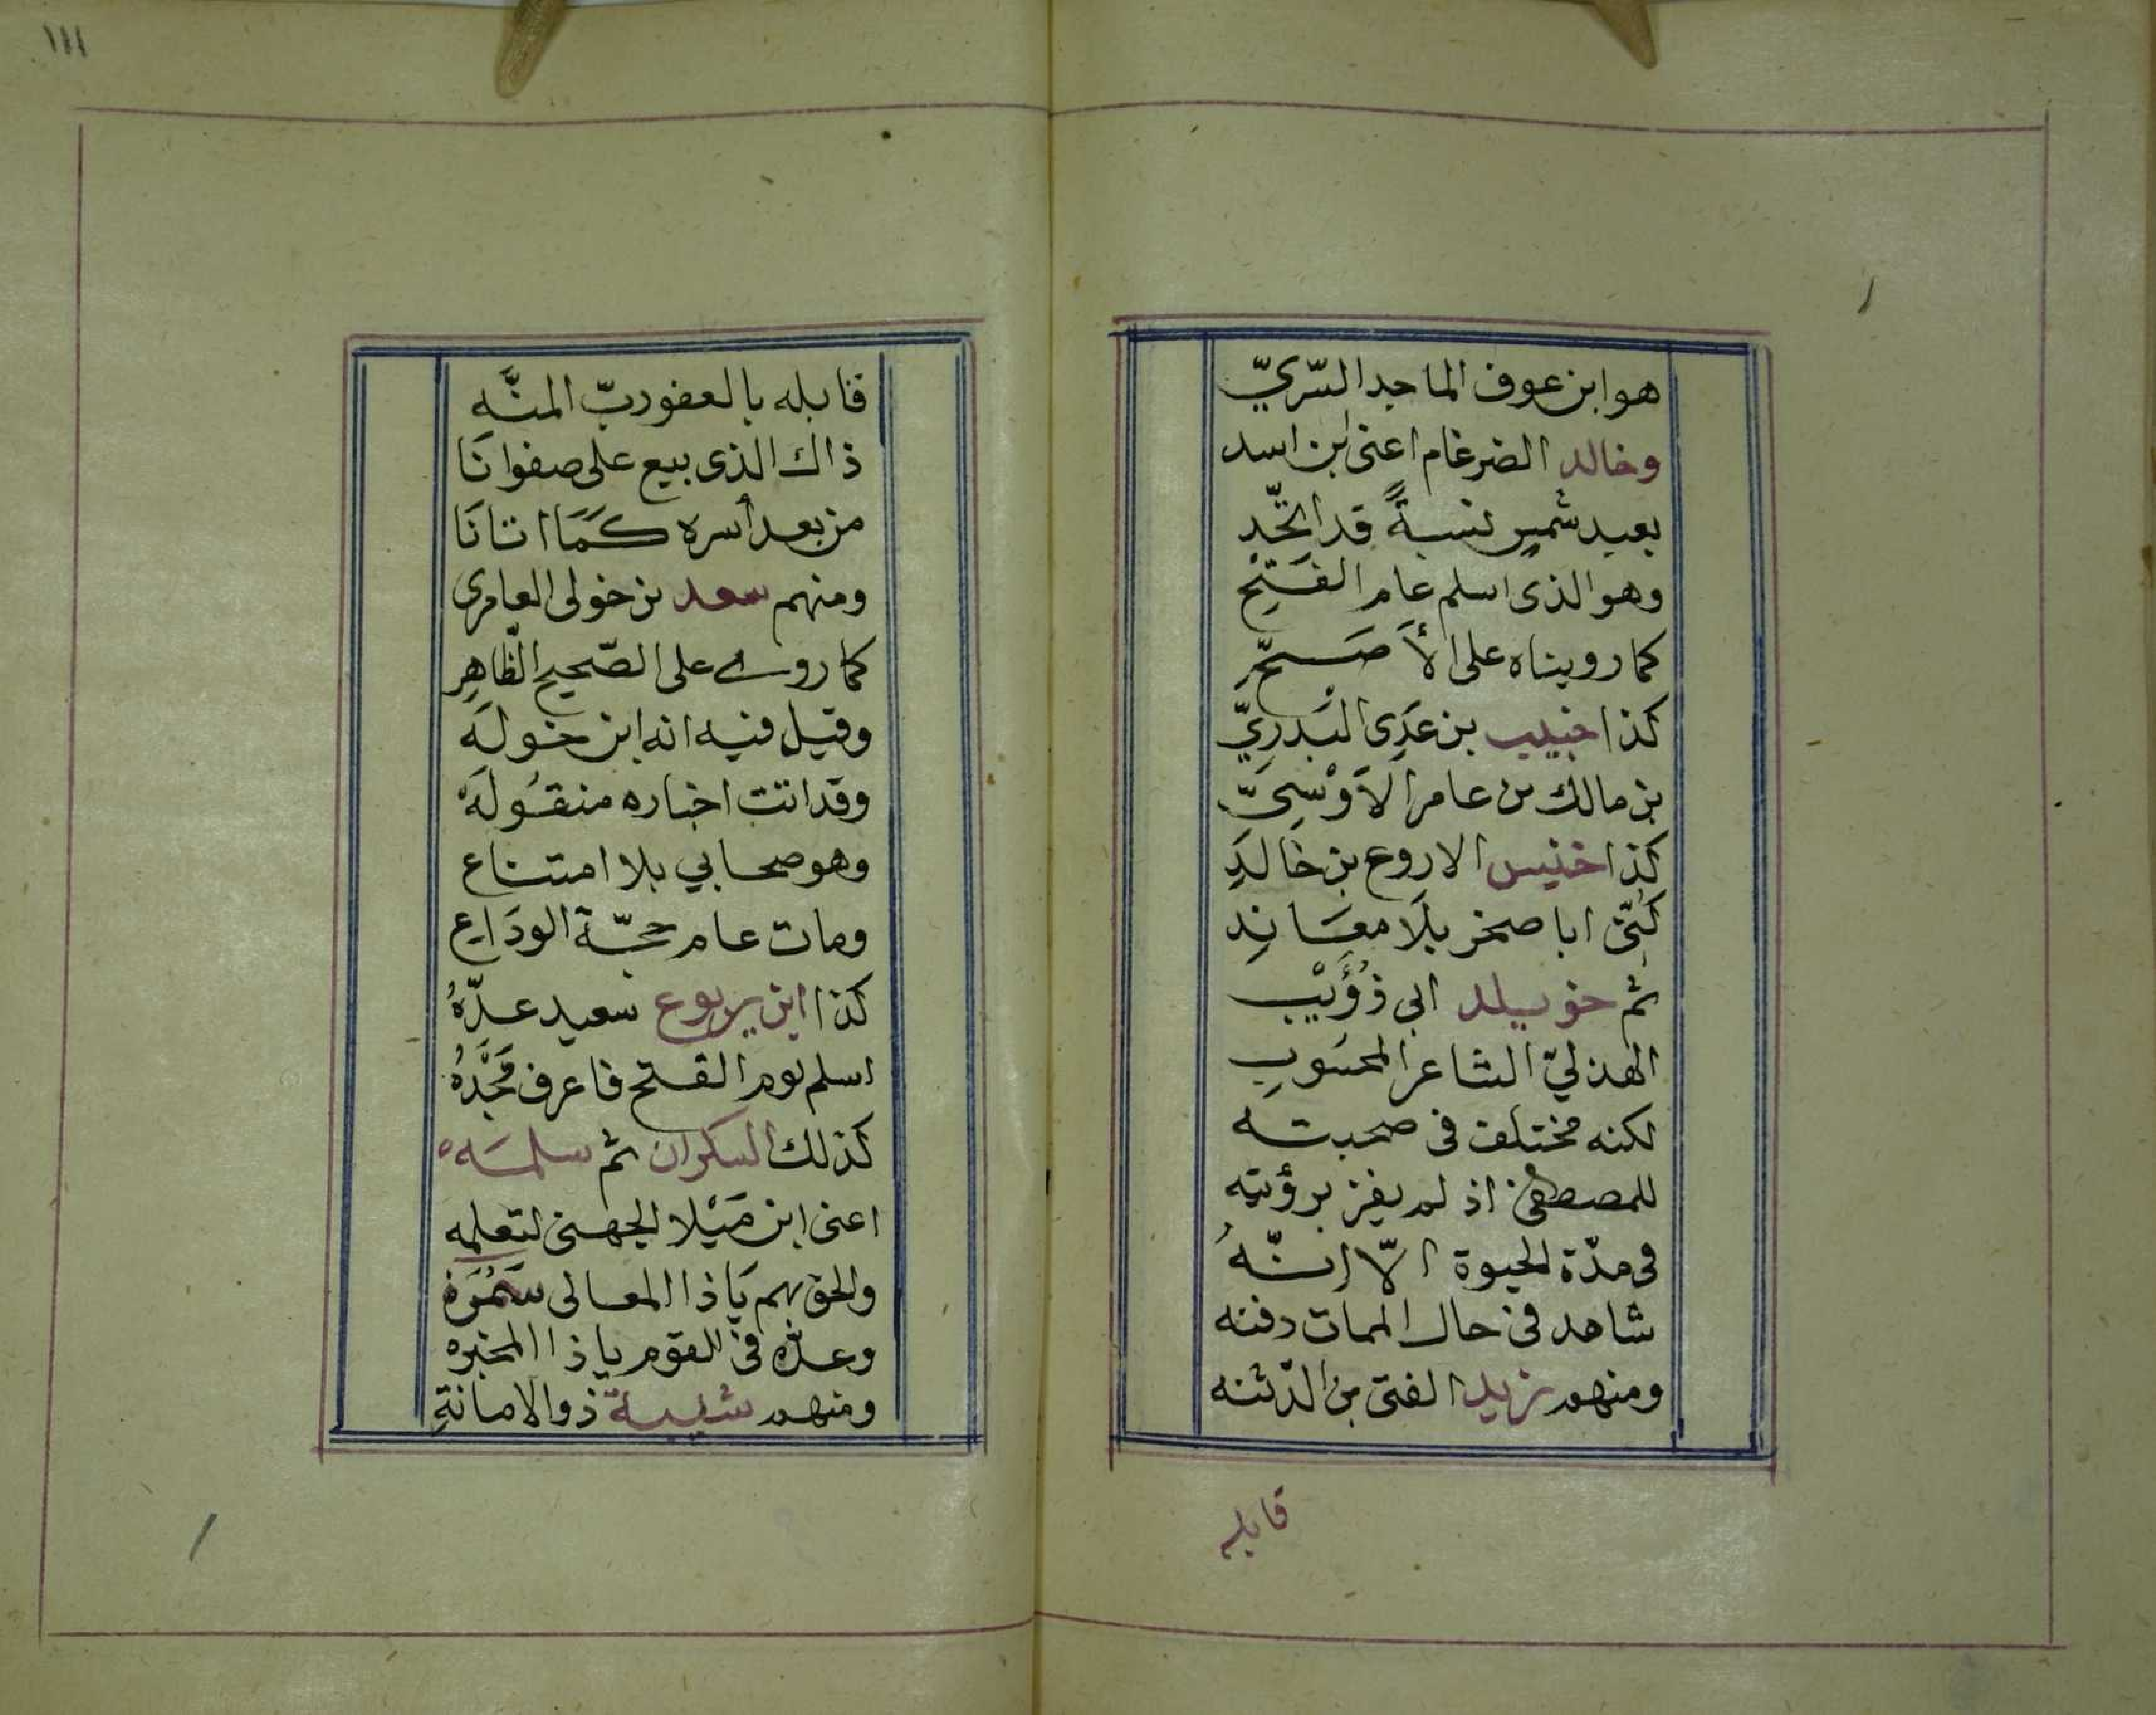 هو ابن عوف الماجد السّريّ
وخالد الضرغام اعنى ابن اسد
بعيد شمس نسبةً قد اتّحد
وهو الذى اسلم عام الفَتحِ
كما رويناه على الأَصَحّ
كذا خبيب بن عَدِى البَدرِيّ
بن مالك من عامر الاَوْسِىّ
كذا خنيس الاروع بن خَالدِ
كنّى ابا صخر بلَا معَانِدِ
ثم خويلد ابى ذُؤَيْبِ
الهذليّ الشاعر المحسوبِ
لكنه مختلف فى صحبته
للمصطفى اذ لم يفز برؤيته
فى مدّة الحيوة الّا انّهُ
شاهد فى حال الممات دفنه
ومنهم زيد الفتى بن الدّثنه
قابله
١١١
قابله بالعفو ربّ المنّه
ذاك الذى بيع على صفوانَا
من بعد أسره كَمَا اتانَا
ومنهم سعد بن خولى العامرى
كما روى على الصّحيح الظّاهِرِ
وقيل فيه انه ابن خولَه
وقد اتت اخباره منقُولَه
وهو صحابي بلا امتناع
ومات عام حجّة الودَاعِ
كذا ابن يربوع سعيد عدّهُ
اسلم يوم الفتح فاعرف مَجْدَهُ
كذلك السكران ثم سلمَه
اعنى ابن مَيْلا الجهنى لتعلمه
والحق بهم يَا ذا المعالى سَمُرَة
وعدّه فى القوم يا ذا المخبره
ومنهم شيبة ذو الامانةِ